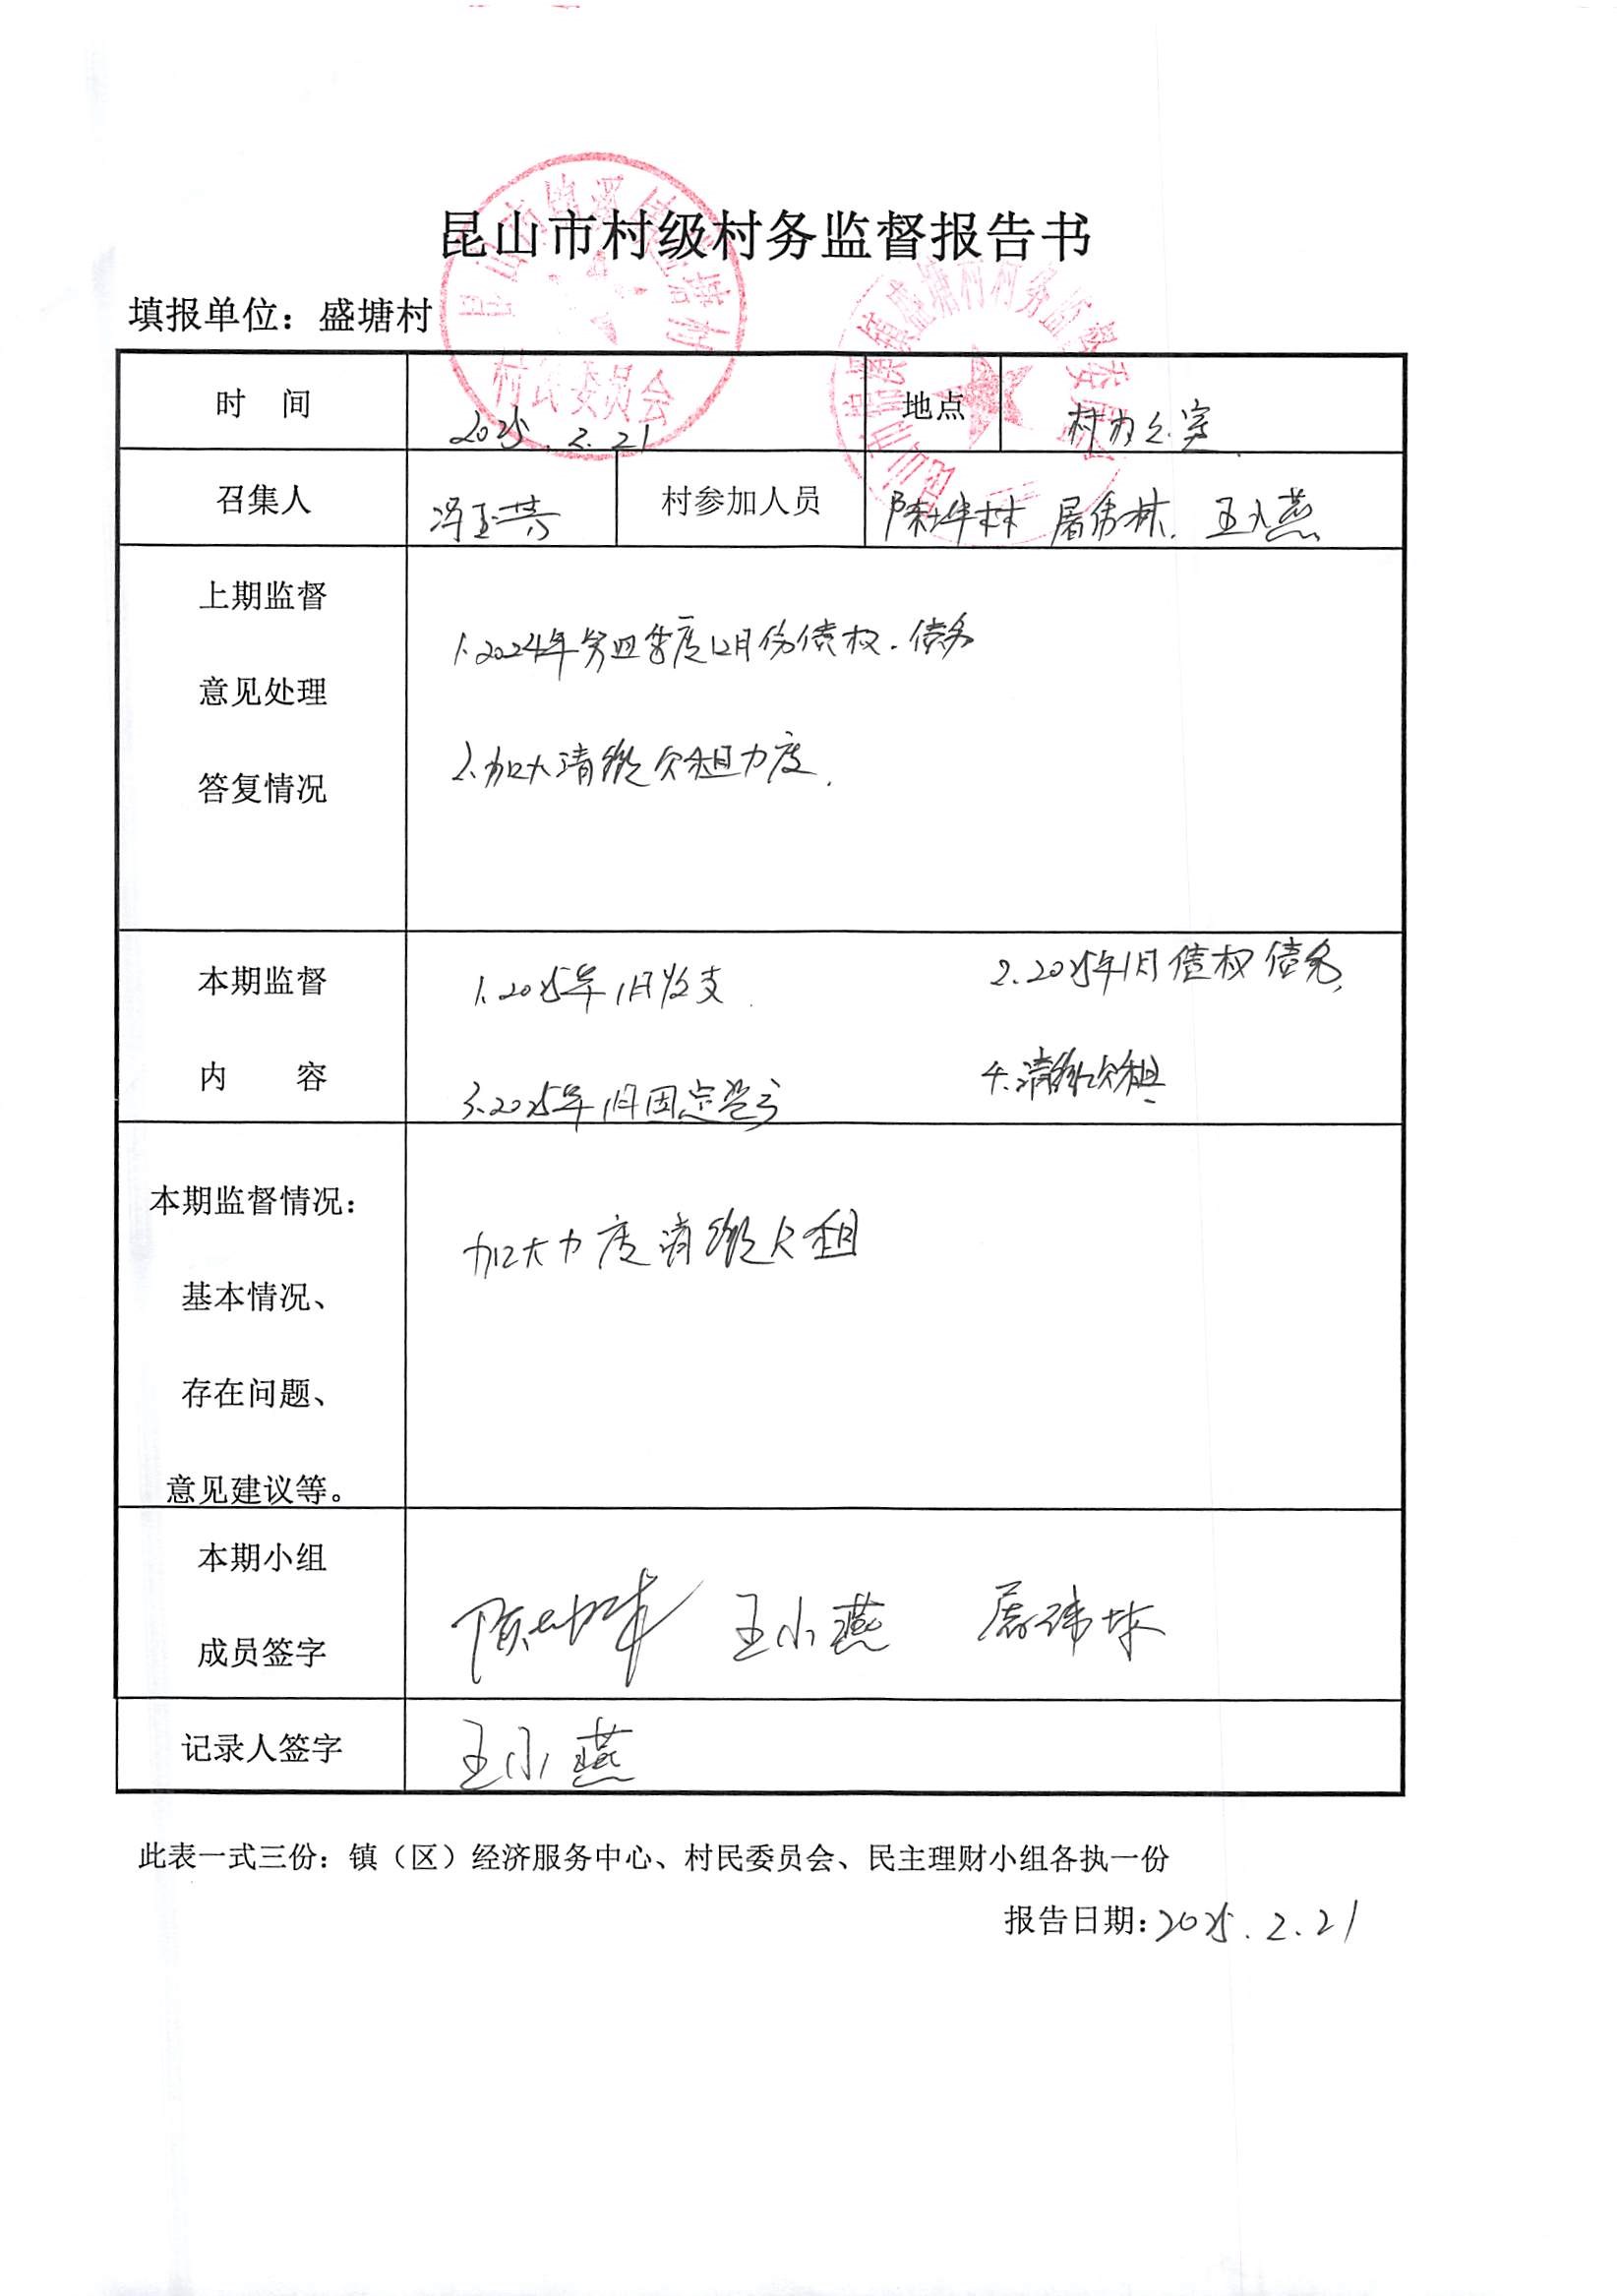 昆山市村级村务监督报告书
填报单位：盛塘村
村民委员会
时 间 2025.2.21 地点 村办公室
召集人 冯玉芳 村参加人员 陈坤林 屠伟林. 王小燕
上期监督
意见处理
答复情况
1.2024年第四季度12月份债权.债务
2.加大清缴欠租力度.
本期监督
内 容
1.2025年1月收支. 2.2025年1月债权债务,
3.2025年1月固定资产 4.清缴欠租
本期监督情况：
基本情况、
存在问题、
意见建议等。
加大力度清缴欠租
本期小组
成员签字
王小燕 屠伟林
记录人签字 王小燕
此表一式三份：镇（区）经济服务中心、村民委员会、民主理财小组各执一份
报告日期：2025.2.21